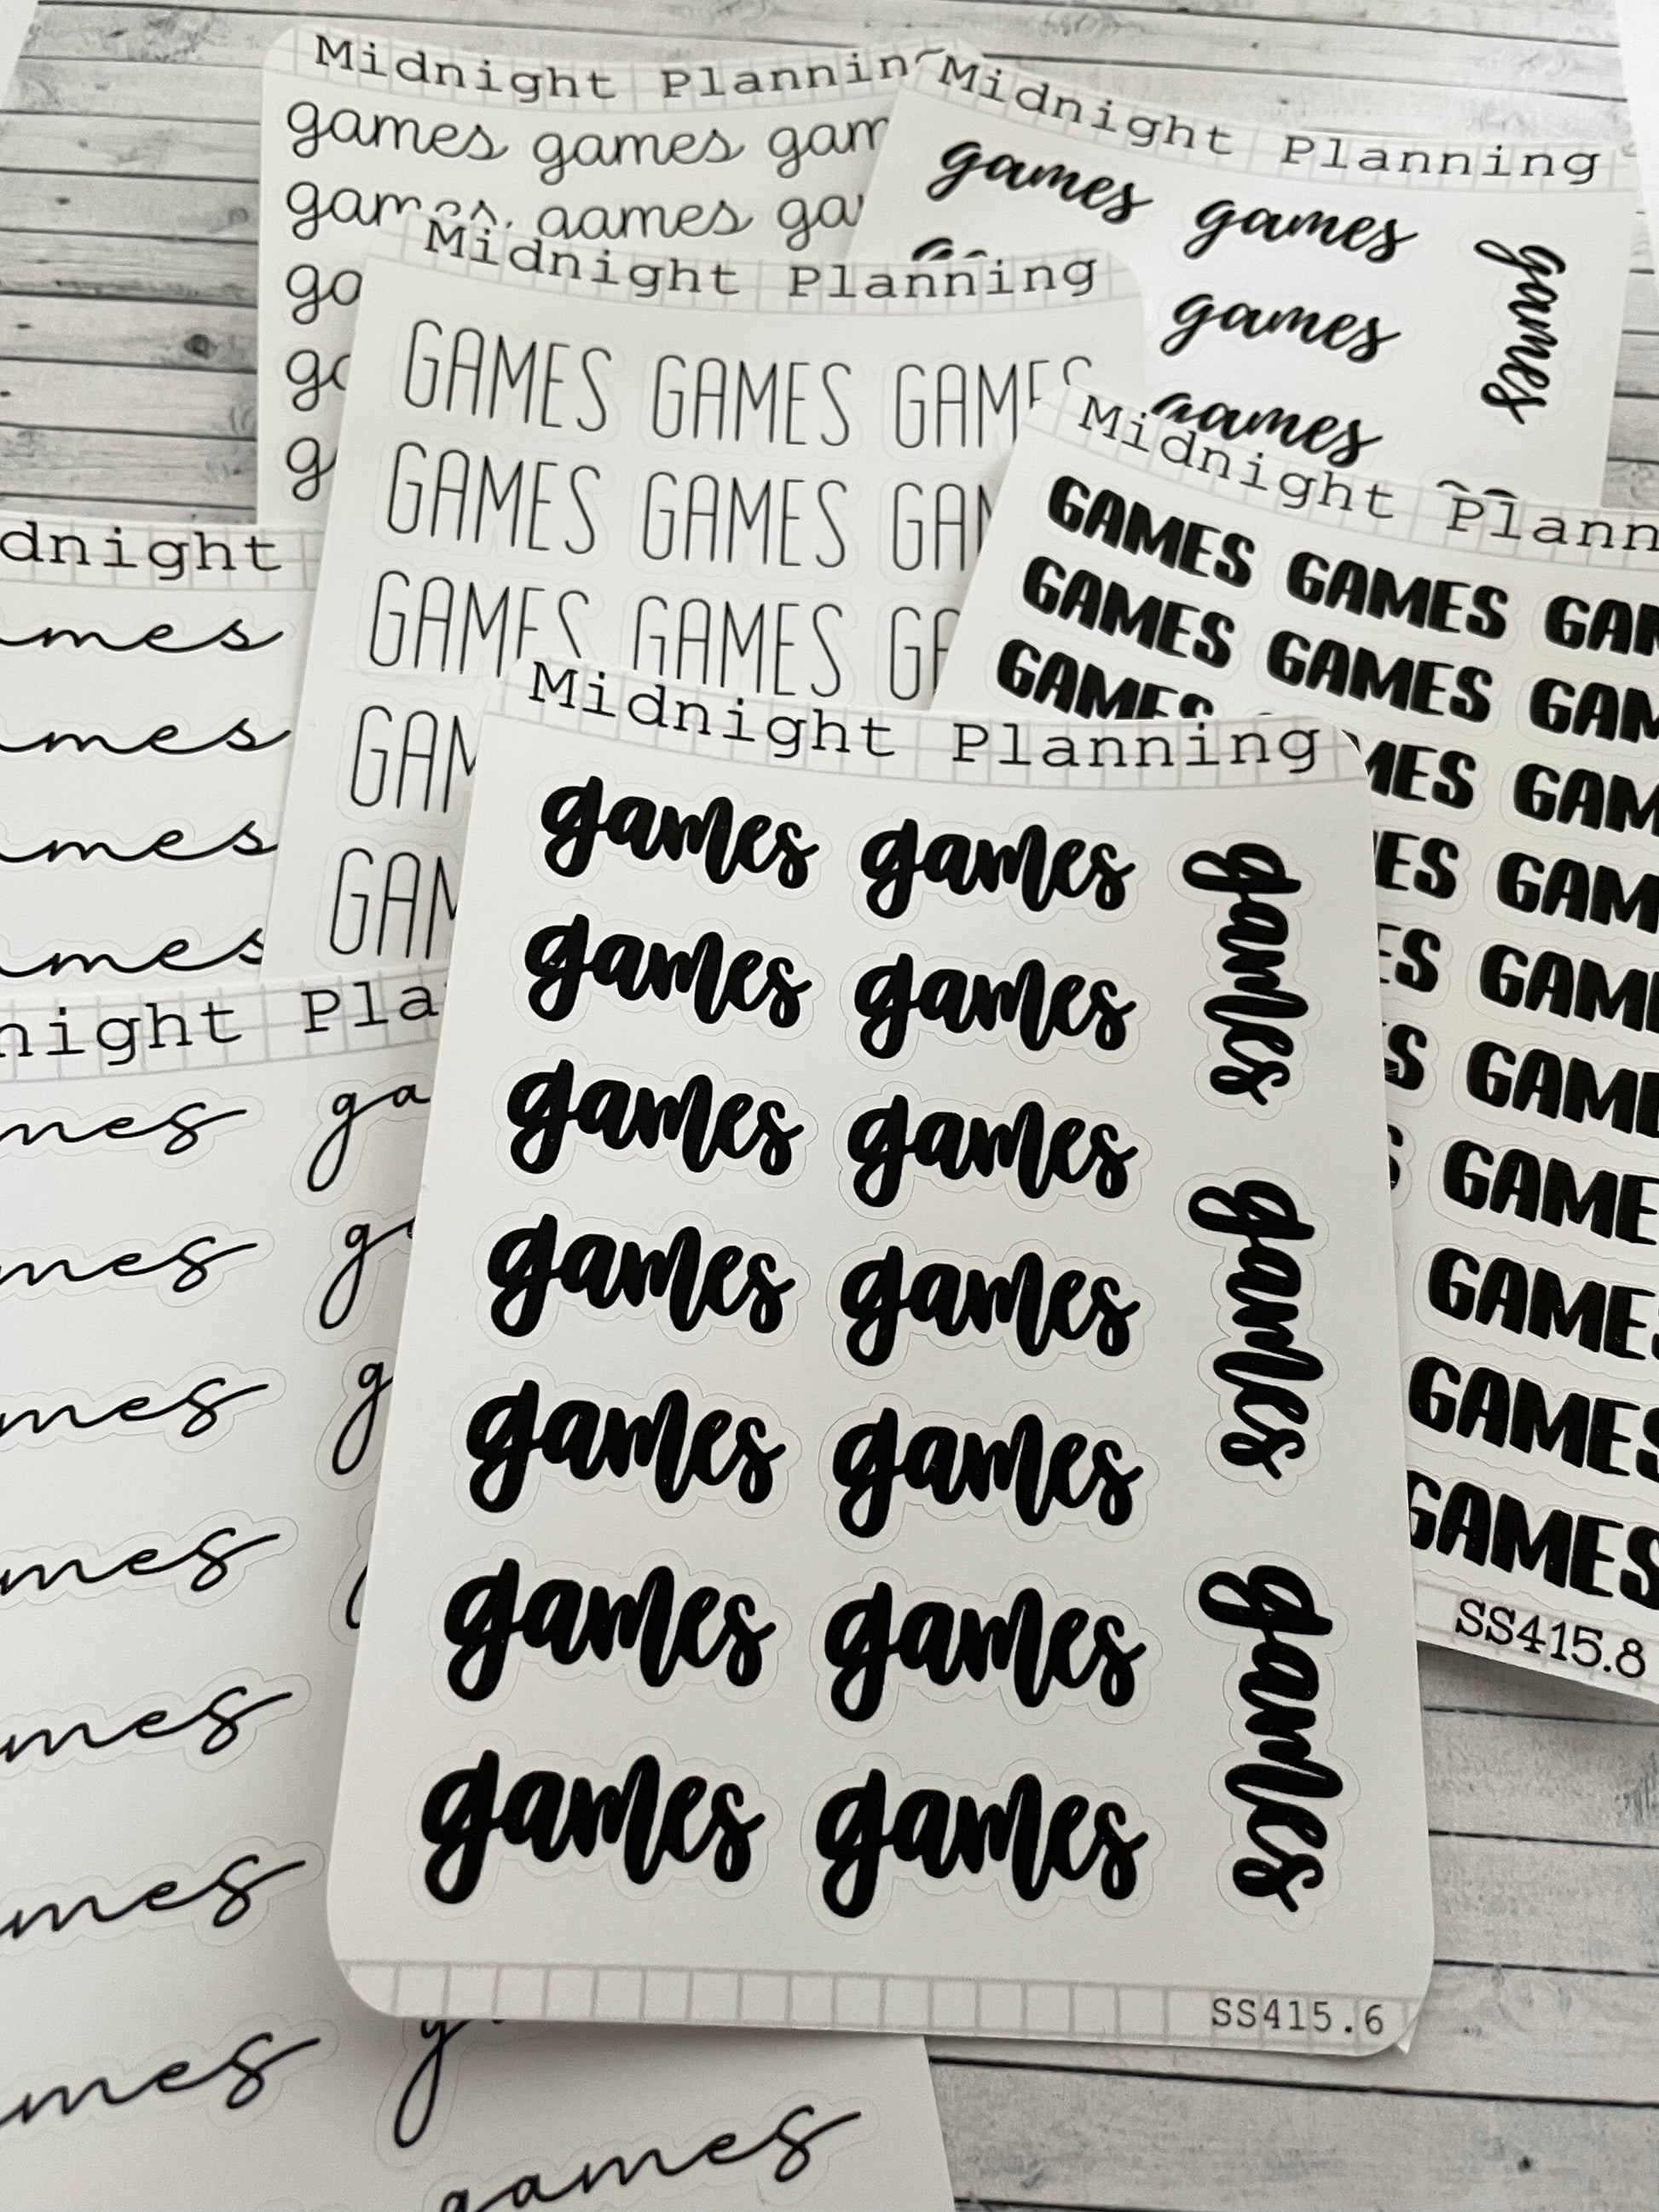 Midnight Plannin
games games gam
games games ga
Midnight Planning
games games games
games
games
Midnight Planning
GAMES GAMES GAMES
GAMES GAMES GA
GAMES GAMES GA
GAM
GAM
Midnight Plann
GAMES GAMES GAM
GAMES GAMES GAM
GAMES GAM
MES GAM
ES GAM
ES GAME
S GAME
S GAME
GAMES
GAMES
GAMES
SS415.8
dnight
ames
ames
ames
ames
night Pla
mes ga
mes ga
mes g
mes
mes
mes
mes
games
Midnight Planning
games games games
games games
games games games
games games
games games games
games games
games games
SS415.6